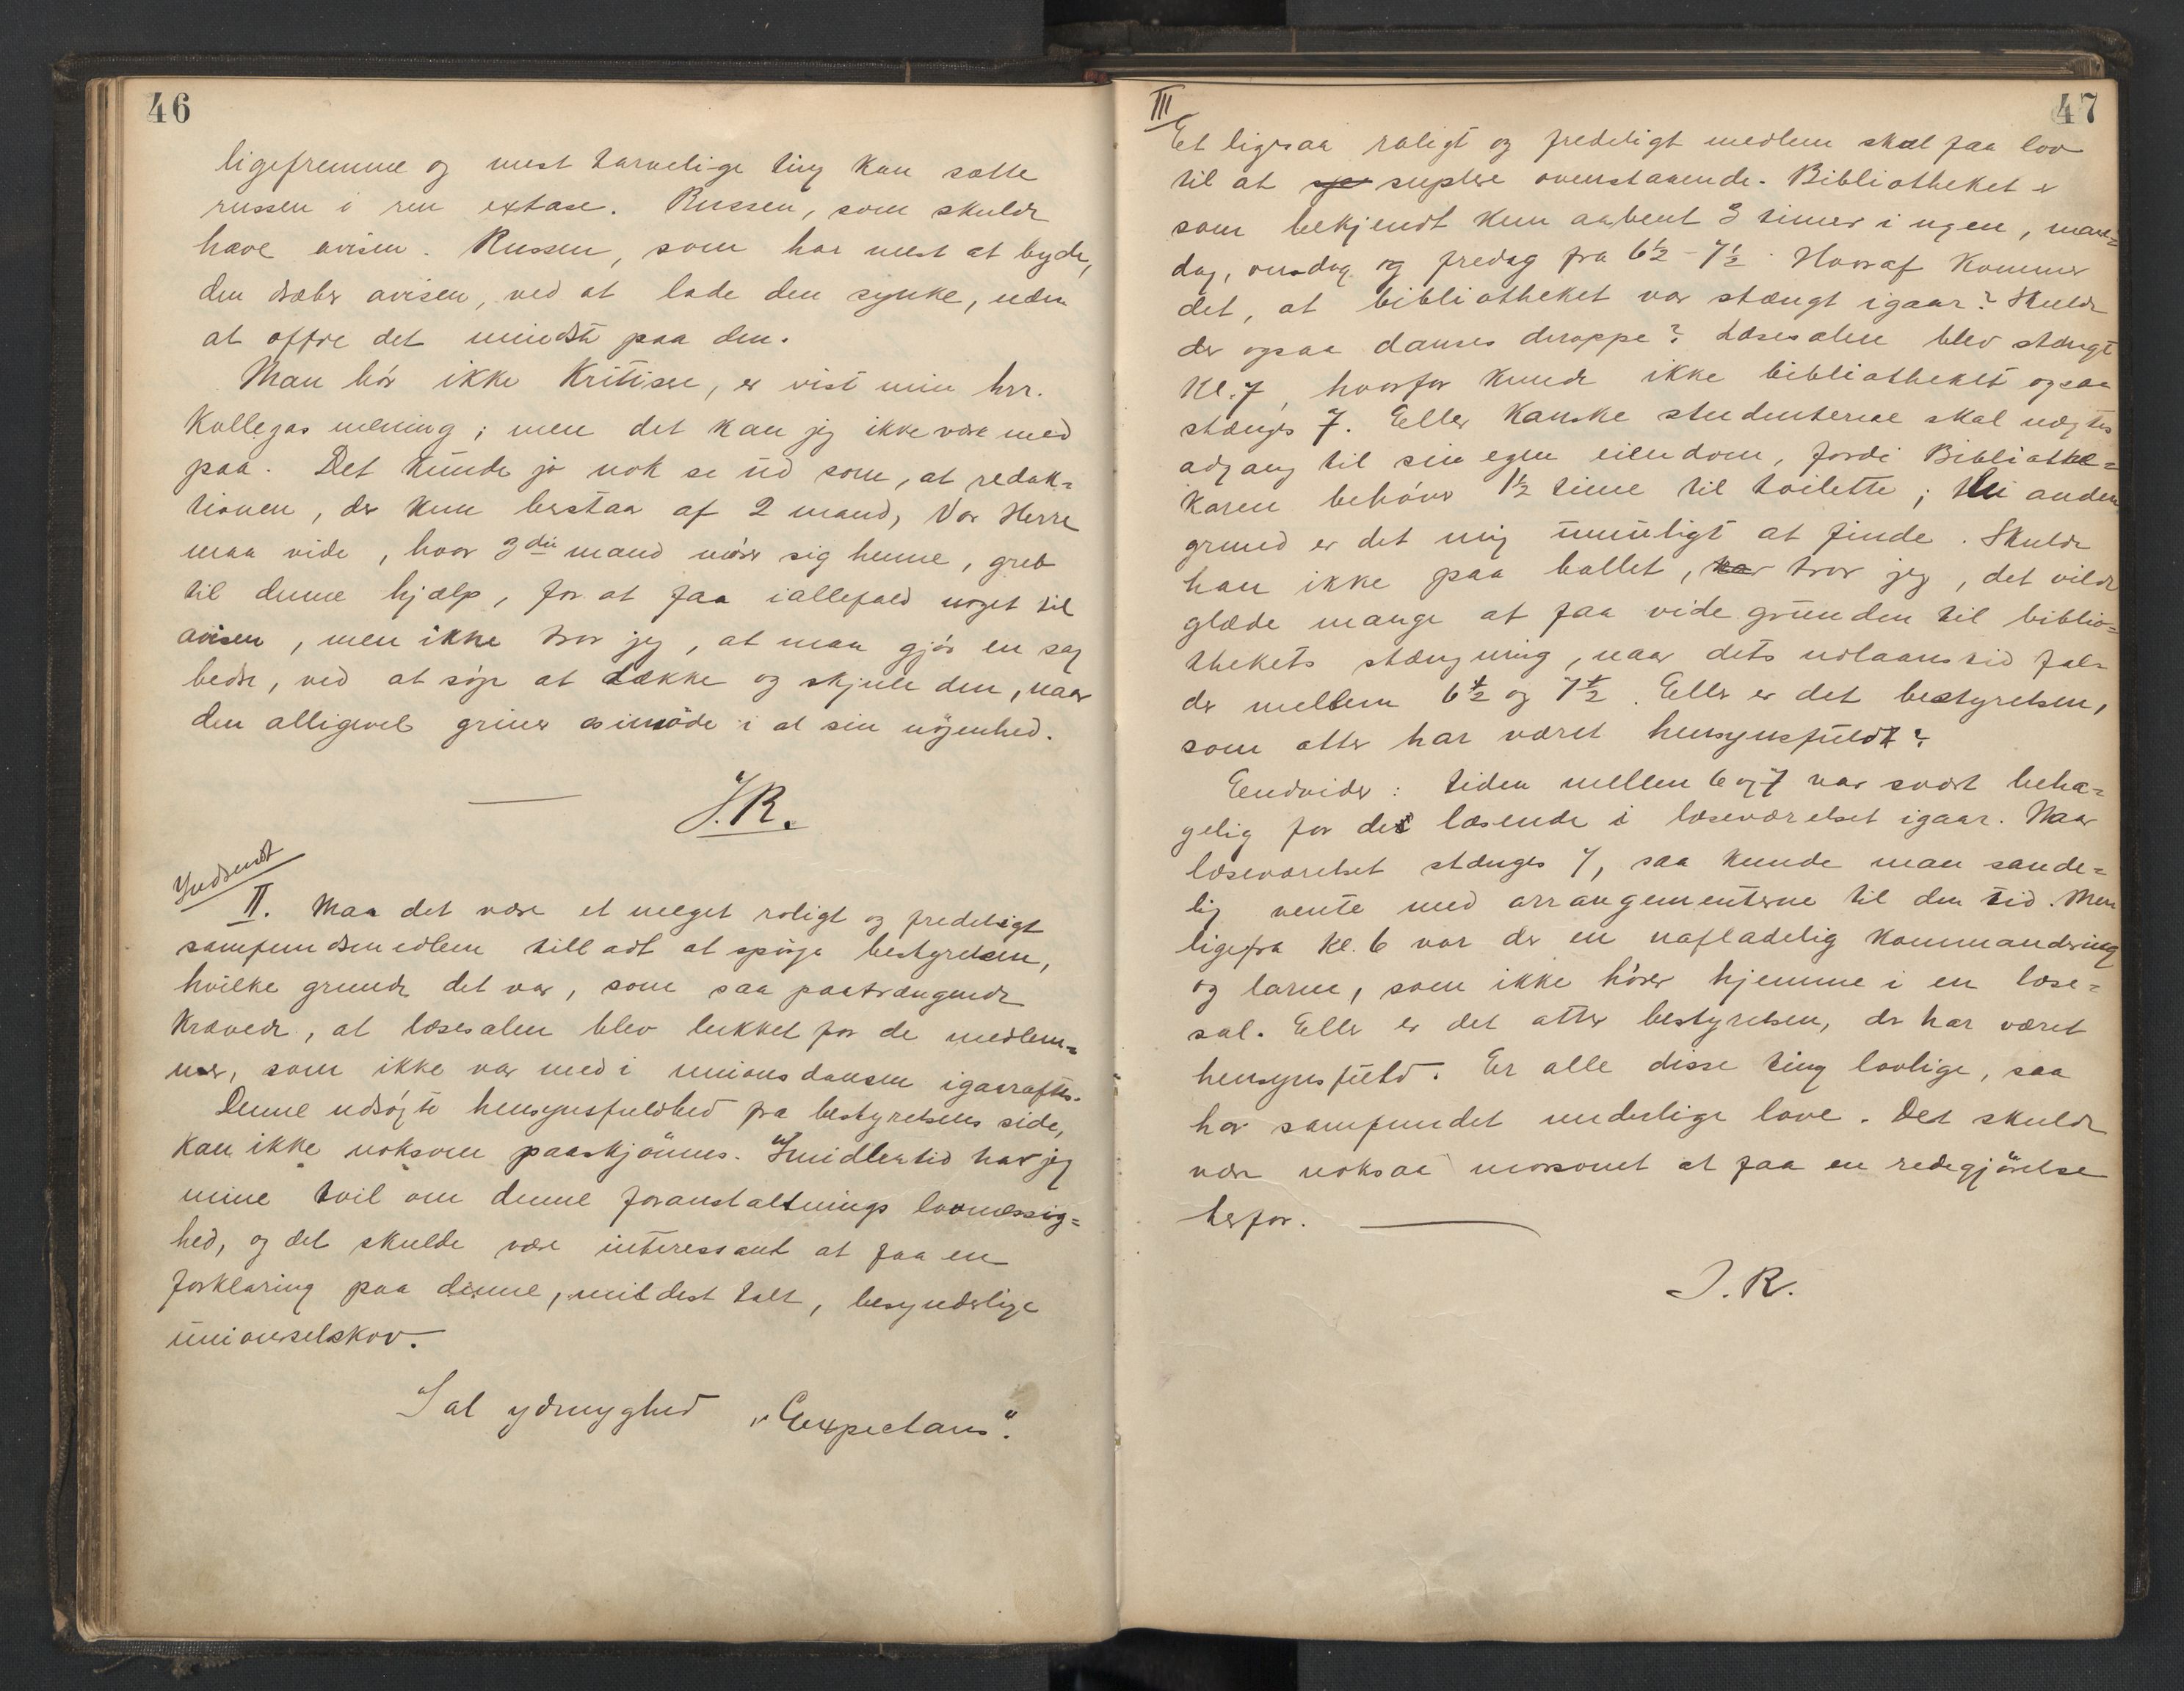 46
ligefremme og mest tarvelige ting kan sætte
russen i ren extase. Russen, som skulde
have avisen. Russen, som har mest at byde,
den dræber avisen, ved at lade den synke, uden
at offre det mindste paa den.
Man bør ikke kritisere, er vist min hrr.
kollegas mening; men det kan jeg ikke være med
paa. Det kunde jo nok se ud som, at redak=
tionen, der kun bestaar af 2 mand, Vor Herre
maa vide, hvor 3die mand rører sig henne, greb
til denne hjælp, for at faa iallefald noget til
avisen, men ikke tror jeg, at man gjør en sag
bedre, ved at søge at dække og skjule den, naar
den alligevel griner os imøde i al sin nøgenhed.
J.R.
Indsendt
II. Maa det være et meget roligt og fredeligt
samfundsmedlem tilladt at spørge bestyrelsen,
hvilke grunde det var, som saa paatrængende
krævede, at læsesalen blev lukket for de medlem=
mer, som ikke var med i unionsdansen igaaraftes.
Denne udsøgte hensynsfuldhed fra bestyrelsens side,
kan ikke noksom paaskjønnes. Imidlertid har jeg
mine tvil om denne foranstaltnings lovmæssig=
hed, og det skulde være interessant at faa en
forklaring paa denne, mildest talt, besynderlige
unionselskov.
I al ydmyghed „Expectans".
47
III
Et ligesaa roligt og fredeligt medlem skal faa lov
til at suplere ovenstaaende. Bibliotheket er
som bekjendt kun aabent 3 timer i ugen, man=
dag, onsdag og fredag fra 6½ - 7½. Hvoraf kommer
det, at bibliotheket var stængt igaar? Skulde
der ogsaa danses deroppe? Læsesalen blev stængt
Kl. 7, hvorfor kunde ikke bibliotheket ogsaa
stænges 7. Eller kanske studenterne skal nægtes
adgang til sin egen eiendom, fordi Bibliothe=
karen behøver 1½ time til toilette; thi anden
grund er det mig umuligt at finde. Skulde
han ikke paa ballet, tror jeg, det vilde
glæde mange at faa vide grunden til biblio=
thekets stængning, naar dets udlaanstid fal=
der mellem 6½ og 7½. Eller er det bestyrelsen,
som atter har været hensynsfuld?
Endvider: tiden mellem 6 og 7 var svært beha=
gelig for de læsende i læseværelset igaar. Naar
læseværelset stænges 7, saa kunde man sande=
lig vente med arrangementerne til den tid. Men
ligefra kl. 6 var der en uafladelig kommandering
og larm, som ikke hører hjemme i en læse=
sal. Eller er det atter bestyrelsen, der har været
hensynsfuld. Er alle disse ting lovlige, saa
har samfundet underlige love. Det skulde
være noksaa morsomt at faa en redegjørelse
herfor.
J.R.